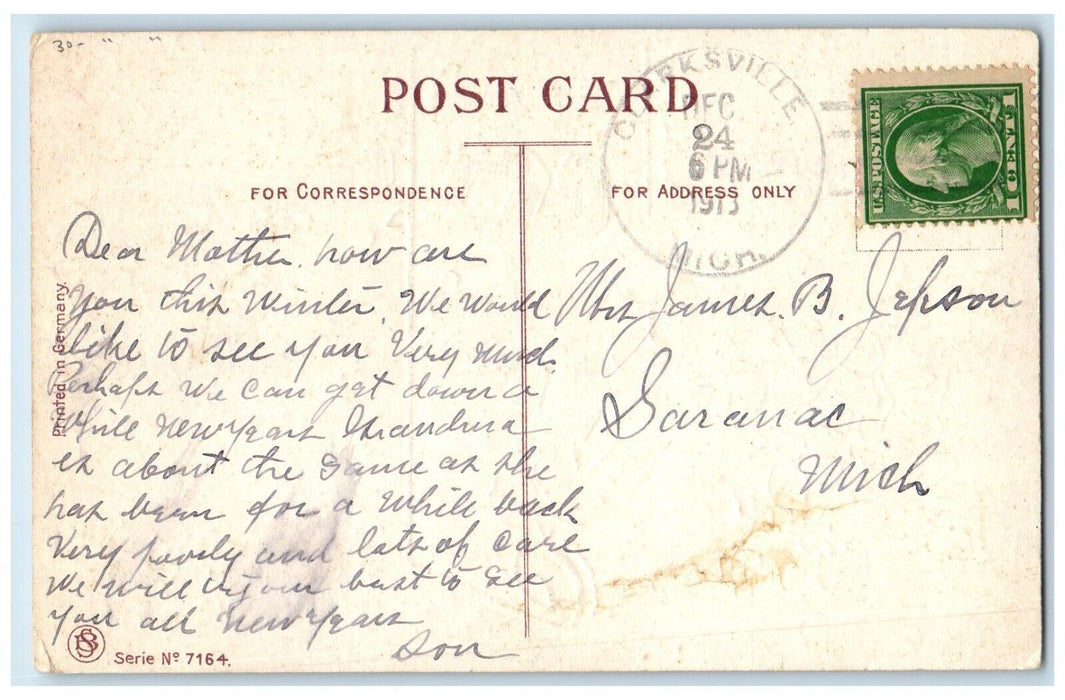 30- " "
POST CARD
CLARKSVILLE
DEC
24
6 PM
1913
MICH.
U.S. POSTAGE
1 CENT 1
FOR CORRESPONDENCE
FOR ADDRESS ONLY
Dear Mother, how are
you this Winter. We Would
like to see you Very much
Perhaps We can get down a
While New Years Grandma
is about the Same as she
has been for a While back
Very poorly and lots of Care
We Will try our best to see
you all New Years
Son
Mrs James. B. Jepson
Saranac
Mich
Printed in Germany.
Serie No 7164.